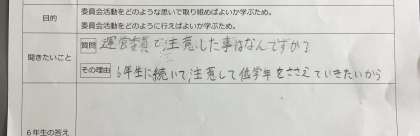 目的
委員会活動をどのような思いで取り組めばよいか学ぶため。
委員会活動をどのように行えばよいか学ぶため。
聞きたいこと
質問 運営委員で注意した事はなんですか?
その理由 6年生に続いて、注意して低学年をささえていきたいから
6年生の答え